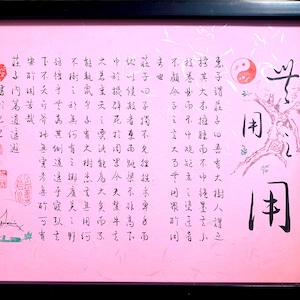 無用之用
惠子謂莊子曰吾有大樹人謂之
樗其大本擁腫而不中繩墨其小
枝卷曲而不中規矩立之塗匠者
不顧今子之言大而無用眾所同
去也
莊子曰子獨不見狸狌乎卑身而
伏以候敖者東西跳梁不辟高下
中於機辟死於罔罟今夫斄牛其
大若垂天之雲此能為大矣而不
能執鼠今子有大樹患其無用何
不樹之於無何有之鄉廣莫之野
彷徨乎無為其側逍遙乎寢臥其
下不夭斤斧物無害者無所可用
安所困苦哉
莊子內篇逍遙遊